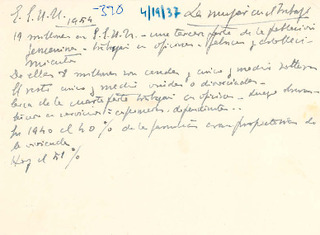 E.E.U.U. 1954 -390 4/19/37 La mujer en trabajo
19 millones en E.E.U.U. - una tercera parte de la población
femenina - trabajan en oficinas - fábricas y
De ellas 8 millones son casadas y cinco y medio solteras
El resto cinco y medio viudas o divorciadas.
Cerca de la cuarta parte trabajan en oficinas - luego
en servicios - dependientes..
En 1940 el 40% de las familias eran propietarias de
la vivienda
Hoy el 51%